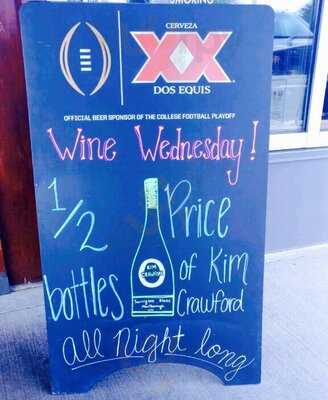 SMOKING
CERVEZA
XX
DOS EQUIS
OFFICIAL BEER SPONSOR OF THE COLLEGE FOOTBALL PLAYOFF
Wine Wednesday!
1/2 Price
bottles of Kim
Crawford
KIM CRAWFORD
Sauvignon Blanc
Marlborough
all night long